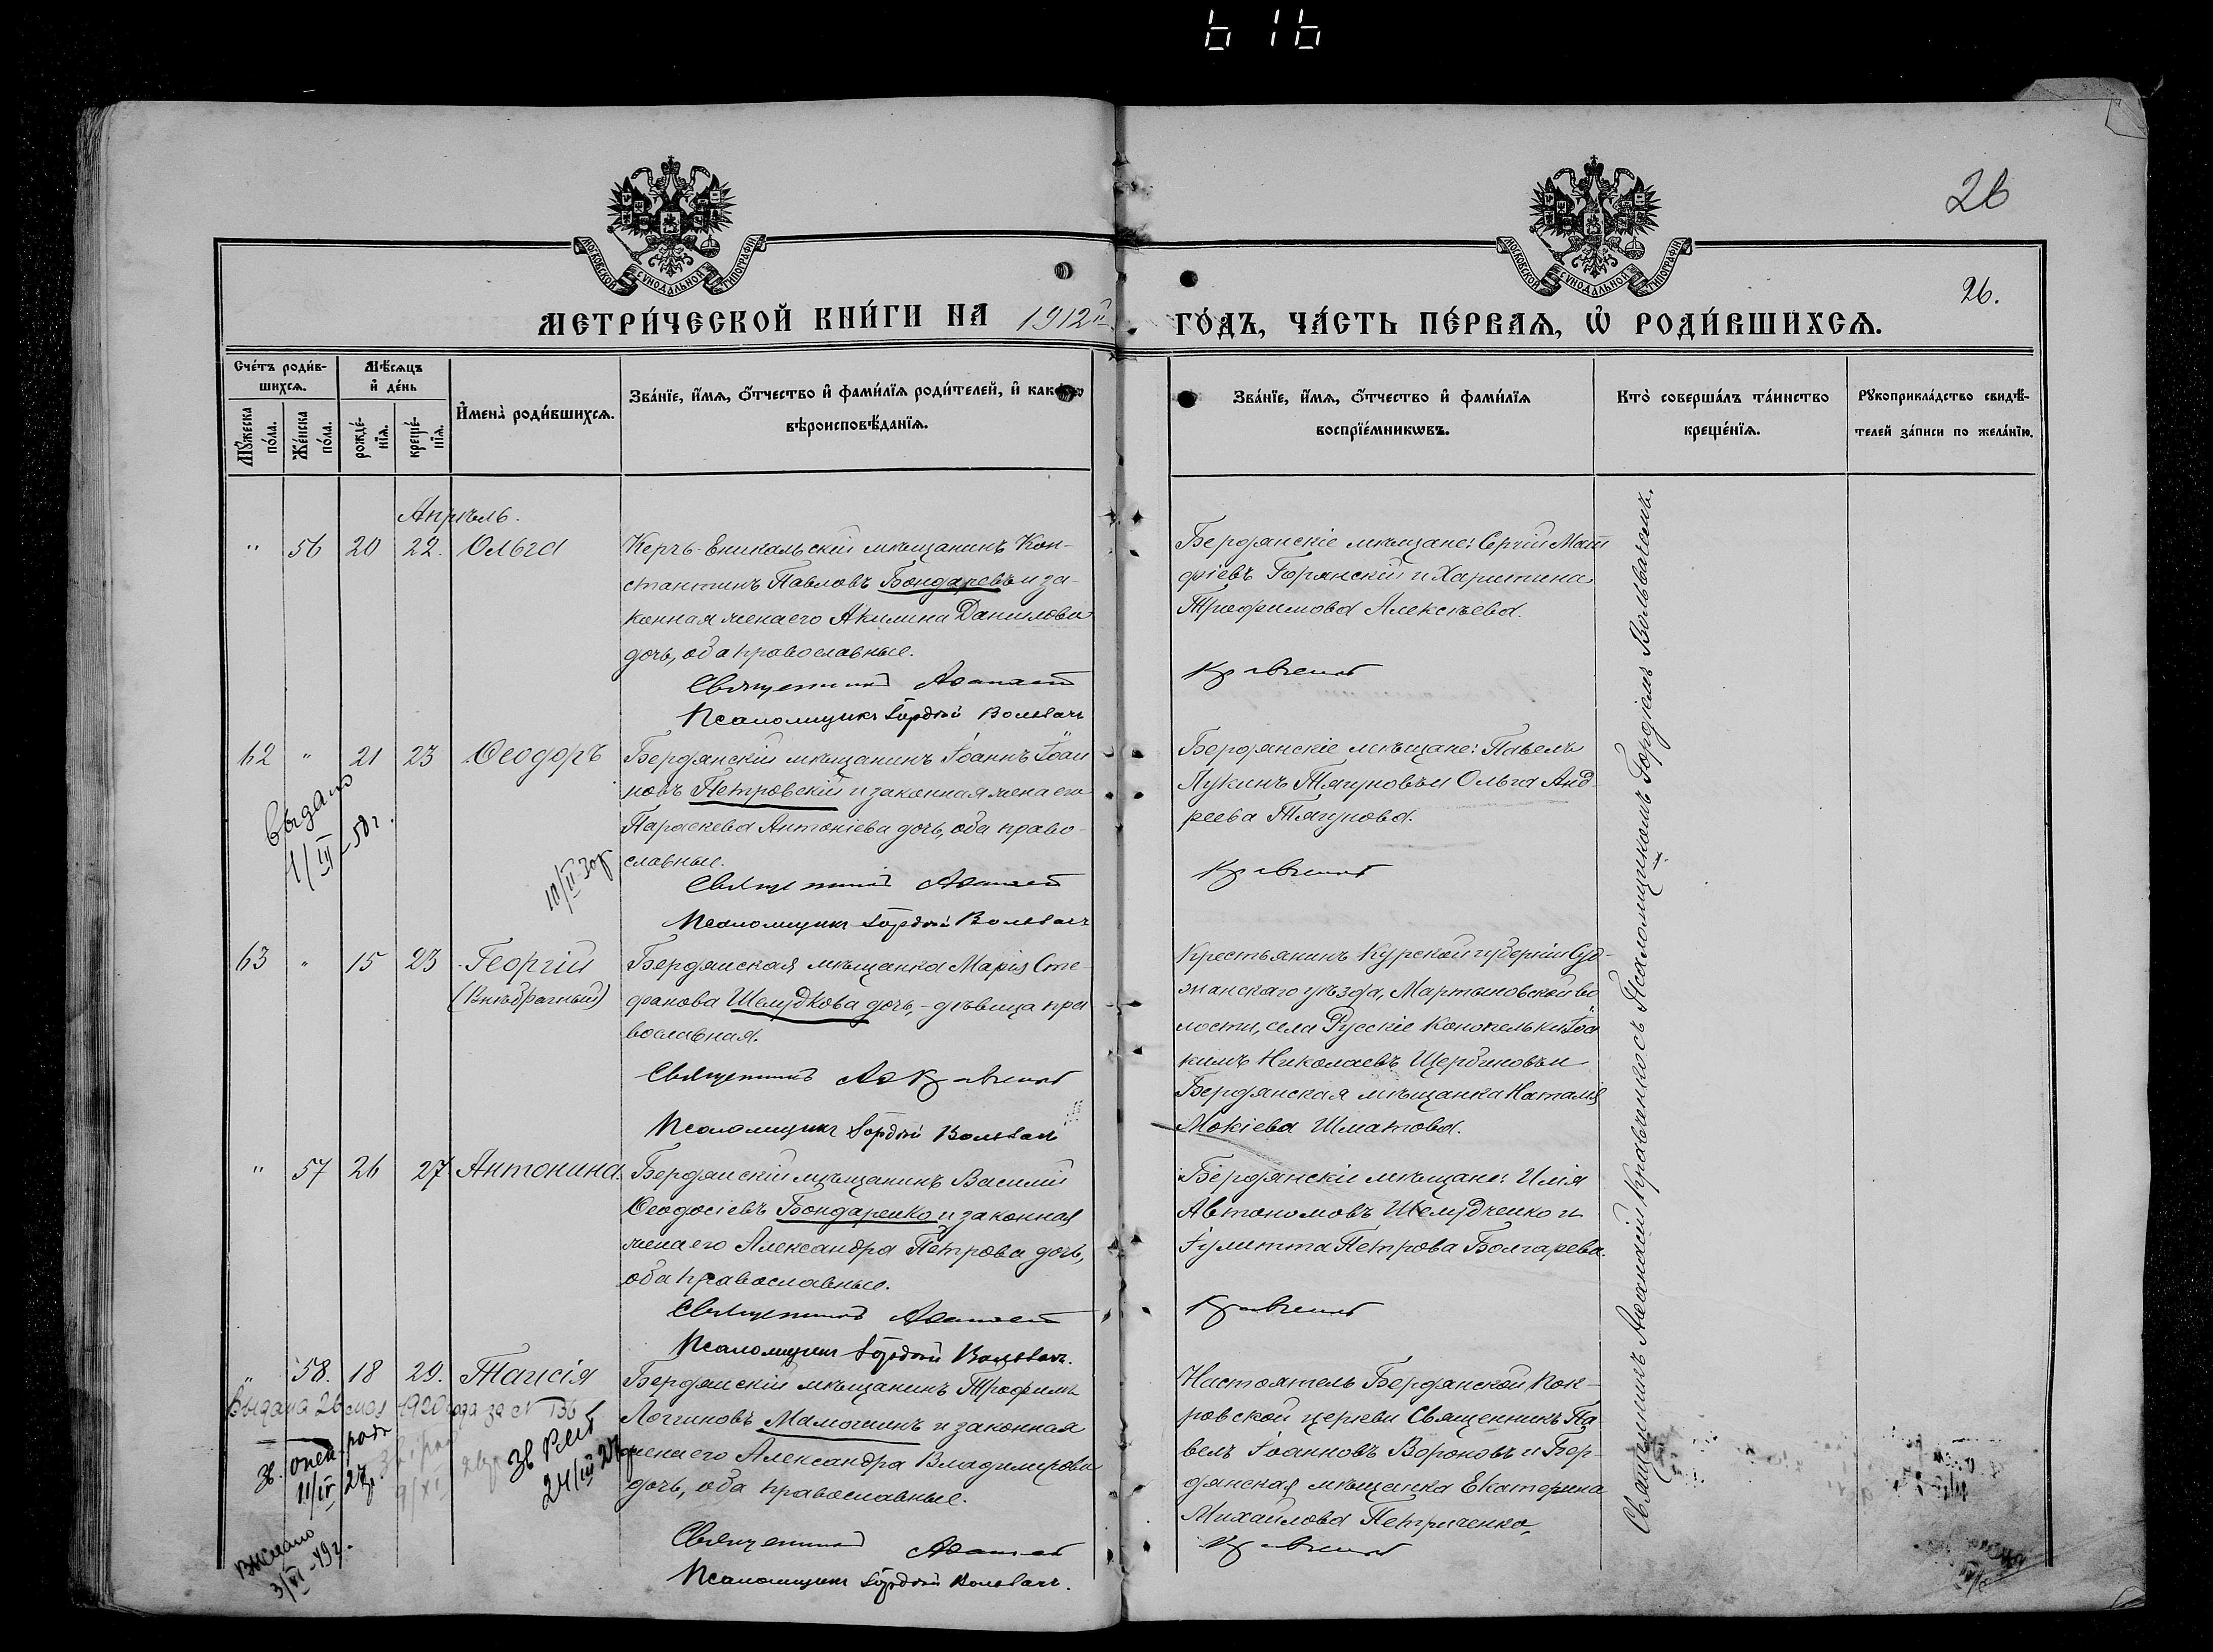 616
26
26.
МОСКОВСКОЙ СѴНОДАЛЬНОЙ ТИПОГРАФІИ
МОСКОВСКОЙ СѴНОДАЛЬНОЙ ТИПОГРАФІИ
МЕТРИ́ЧЕСКОЙ КНИ́ГИ НА 1912й
ГО́ДЪ, ЧА́СТЬ ПЕ́РВАЯ, Ѡ҆ РОДИ́ВШИХСЯ.
Сче́тъ роди́в-
шихся.
Мꙋ́жеска
по́ла.
Же́нска
по́ла.
Мѣ́сяцъ
и҆ де́нь
рожде́-
нїя.
креще́-
нїя.
И҆мена̀ роди́вшихся.
Зва́нїе, и҆́мя, ѻ҆́тчество и҆ фами́лїя роди́телей, и҆ как
вѣроисповѣ́данїя.
Зва́нїе, и҆́мя, ѻ҆́тчество и҆ фами́лїя
воспрїе́мникѡвъ.
Кто̀ соверша́лъ та́инство
креще́нїя.
Рꙋкоприкла́дство свидѣ́-
телей за́писи по жела́нїю.
Апрѣль.
" 56 20 22. Ольга
Керчь-Еникальскій мѣщанинъ Кон-
стантинъ Павловъ Бондаревъ и за-
конная жена его Акилина Данилова
дочь, оба православные.
Священникъ Аѳанасій
Псаломщикъ Гордій Вольвачъ
Бердянскіе мѣщане: Сергій Мат
фіевъ Горянскій и Харитина
Трофимова Алексѣева.
Кравченко
62 " 21 23 Ѳеодоръ
Бердянскій мѣщанинъ Іоаннъ Іоан
новъ Петровскій и законная жена его
Параскева Антоніева дочь, оба право-
славные.
Священникъ Аѳанасій
Псаломщикъ Гордій Вольвачъ
Выдано
1/III-58г.
10/II 30г
Бердянскіе мѣщане: Павелъ
Лукинъ Тягуновъ и Ольга Анд
реева Тягунова.
Кравченко
63 " 15 23 Георгій
(Внѣбрачный)
Бердянская мѣщанка Марія Сте-
фанова Шелудкова дочь,-дѣвица пра
вославная.
Священникъ Аѳ Кравченко
Псаломщикъ Гордій Вольвачъ
Крестьянинъ Курской губерніи Суд-
жанскаго уѣзда, Мартыновской во
лости, села Русскіе Конопельки Іоа
кимъ Николаевъ Щербиновъ и
Бердянская мѣщанка Наталія
Мокіева Шматова.
" 57 26 27 Антонина.
Бердянскій мѣщанинъ Василій
Ѳеодосіевъ Бондаренко и законная
жена его Александра Петрова дочь,
оба православные.
Священникъ Аѳанасій
Псаломщикъ Гордій Вольвачъ.
Бердянскіе мѣщане: Илія
Автономовъ Шелудченко и
Іулитта Петрова Болгарева.
Кравченко
" 58. 18 29. Таисія
Бердянскій мѣщанинъ Трофимъ
Логгиновъ Мамочкинъ и законная
жена его Александра Владимірова
дочь, оба православные.
Священникъ Аѳанасій
Псаломщикъ Гордій Вольвачъ.
Выдана 26 мая 1920 года за № 136
11/IV 27г.
24/III 27г
3/VI-49г.
Настоятель Бердянской Пок-
ровской церкви Священникъ Па
велъ Іоанновъ Вороновъ и Бер-
дянская мѣщанка Екатерина
Михайлова Петриченко.
Кравченко
Священникъ Аѳанасій Кравченко съ Псаломщикомъ Гордіемъ Вольвачемъ.